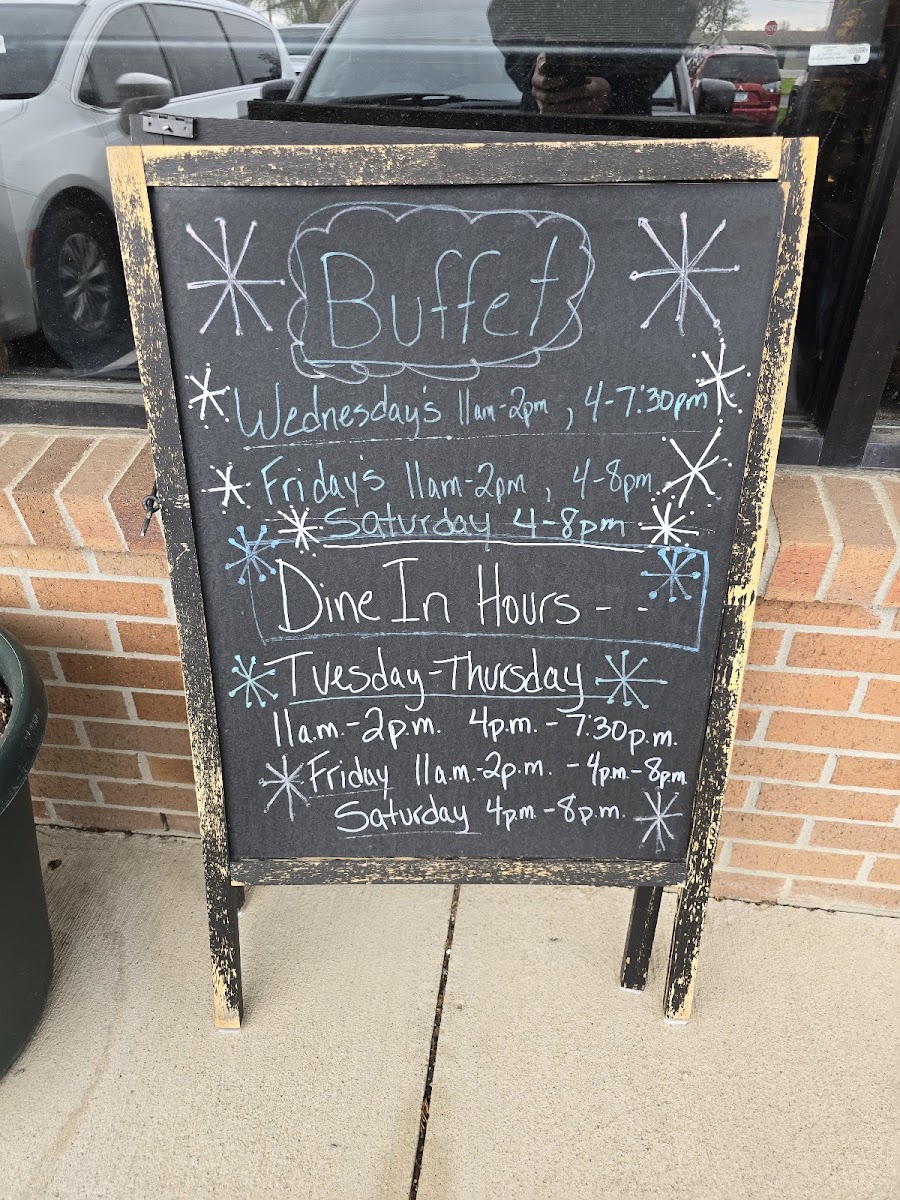 Buffet
Wednesday's 11am-2pm, 4-7:30pm
Friday's 11am-2pm, 4-8pm
Saturday 4-8pm
Dine In Hours - -
Tuesday-Thursday
11am.-2p.m. 4p.m.-7:30p.m.
Friday 11a.m.-2p.m. -4p.m.-8p.m
Saturday 4pm-8p.m.